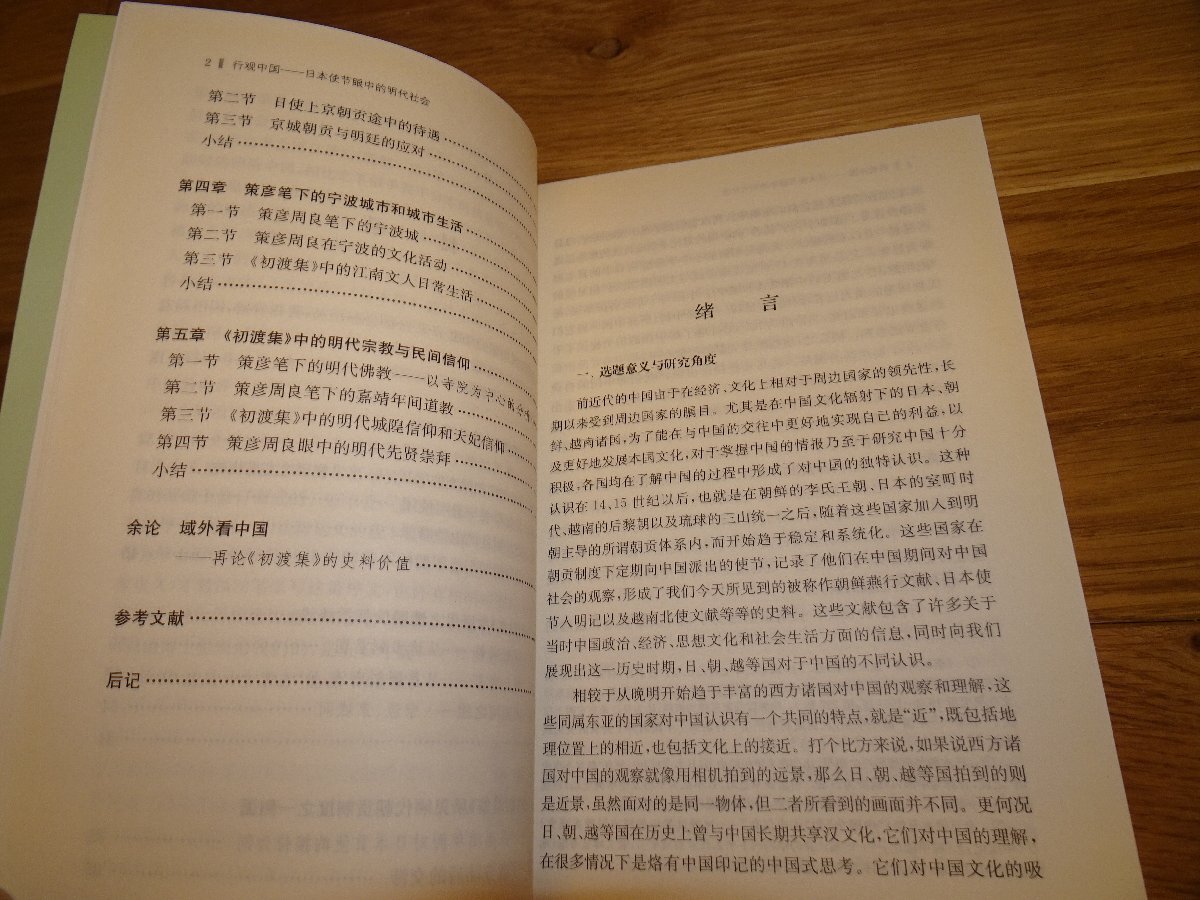 2 行观中国——日本使节眼中的明代社会
第二节 日使上京朝贡途中的待遇
第三节 京城朝贡与明廷的应对
小结
第四章 策彦笔下的宁波城市和城市生活
第一节 策彦周良笔下的宁波城
第二节 策彦周良在宁波的文化活动
第三节 《初渡集》中的江南文人日常生活
小结
第五章 《初渡集》中的明代宗教与民间信仰
第一节 策彦笔下的明代佛教——以寺院为中心的
第二节 策彦周良笔下的嘉靖年间道教
第三节 《初渡集》中的明代城隍信仰和天妃信仰
第四节 策彦周良眼中的明代先贤崇拜
小结
余论 域外看中国
——再论《初渡集》的史料价值
参考文献
后记
绪 言
一、选题意义与研究角度
前近代的中国由于在经济、文化上相对于周边国家的领先性，长
期以来受到周边国家的瞩目。尤其是在中国文化辐射下的日本、朝
鲜、越南诸国，为了能在与中国的交往中更好地实现自己的利益，以
及更好地发展本国文化，对于掌握中国的情报乃至于研究中国十分
积极，各国均在了解中国的过程中形成了对中国的独特认识。这种
认识在14、15世纪以后，也就是在朝鲜的李氏王朝、日本的室町时
代、越南的后黎朝以及琉球的三山统一之后，随着这些国家加入到明
朝主导的所谓朝贡体系内，而开始趋于稳定和系统化。这些国家在
朝贡制度下定期向中国派出的使节，记录了他们在中国期间对中国
社会的观察，形成了我们今天所见到的被称作朝鲜燕行文献、日本使
节入明记以及越南北使文献等等的史料。这些文献包含了许多关于
当时中国政治、经济、思想文化和社会生活方面的信息，同时向我们
展现出这一历史时期，日、朝、越等国对于中国的不同认识。
相较于从晚明开始趋于丰富的西方诸国对中国的观察和理解，这
些同属东亚的国家对中国认识有一个共同的特点，就是“近”，既包括地
理位置上的相近，也包括文化上的接近。打个比方来说，如果说西方诸
国对中国的观察就像用相机拍到的远景，那么日、朝、越等国拍到的则
是近景，虽然面对的是同一物体，但二者所看到的画面并不同。更何况
日、朝、越等国在历史上曾与中国长期共享汉文化，它们对中国的理解，
在很多情况下是烙有中国印记的中国式思考。它们对中国文化的吸